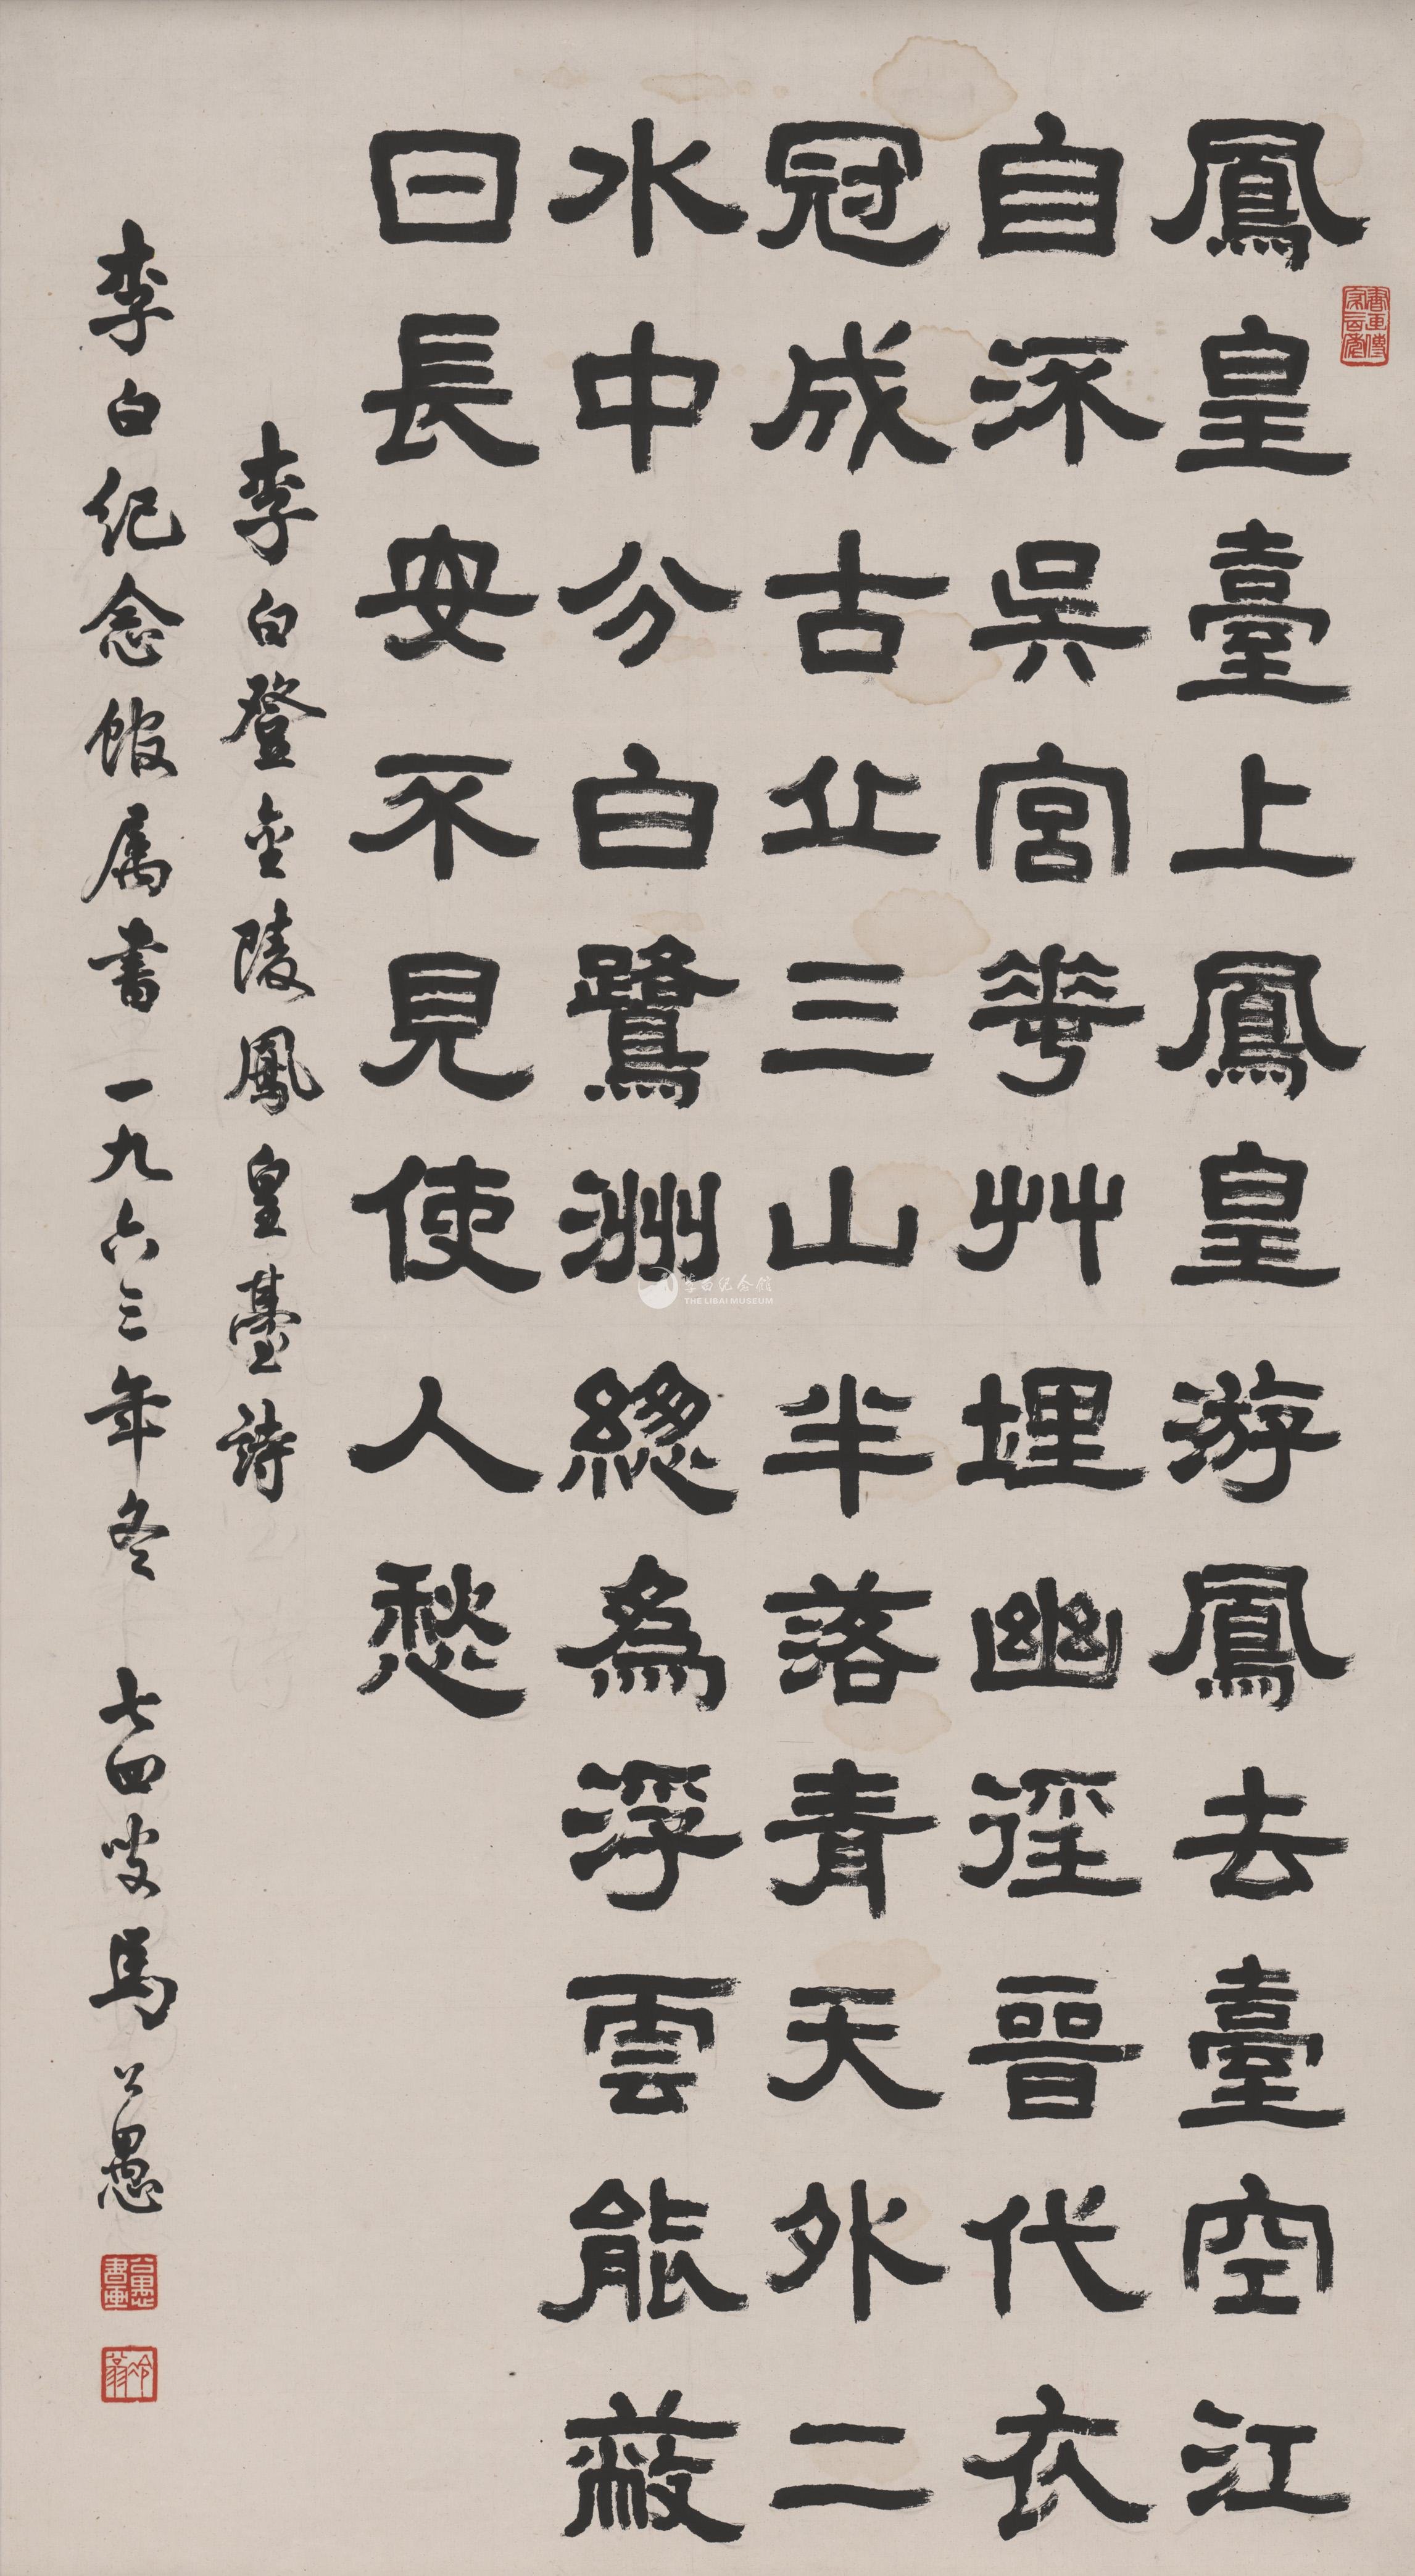 鳳皇臺上鳳皇游鳳去臺空江
自流吳宮華艸埋幽徑晉代衣
冠成古丘三山半落青天外二
水中分白鷺洲總為浮雲能蔽
日長安不見使人愁
李白登金陵鳳皇臺詩
李白紀念館属書一九六三年冬 七四叟馬公愚
公愚書畫
冷翁
書畫傳家三百年
李白纪念馆
THE LIBAI MUSEUM